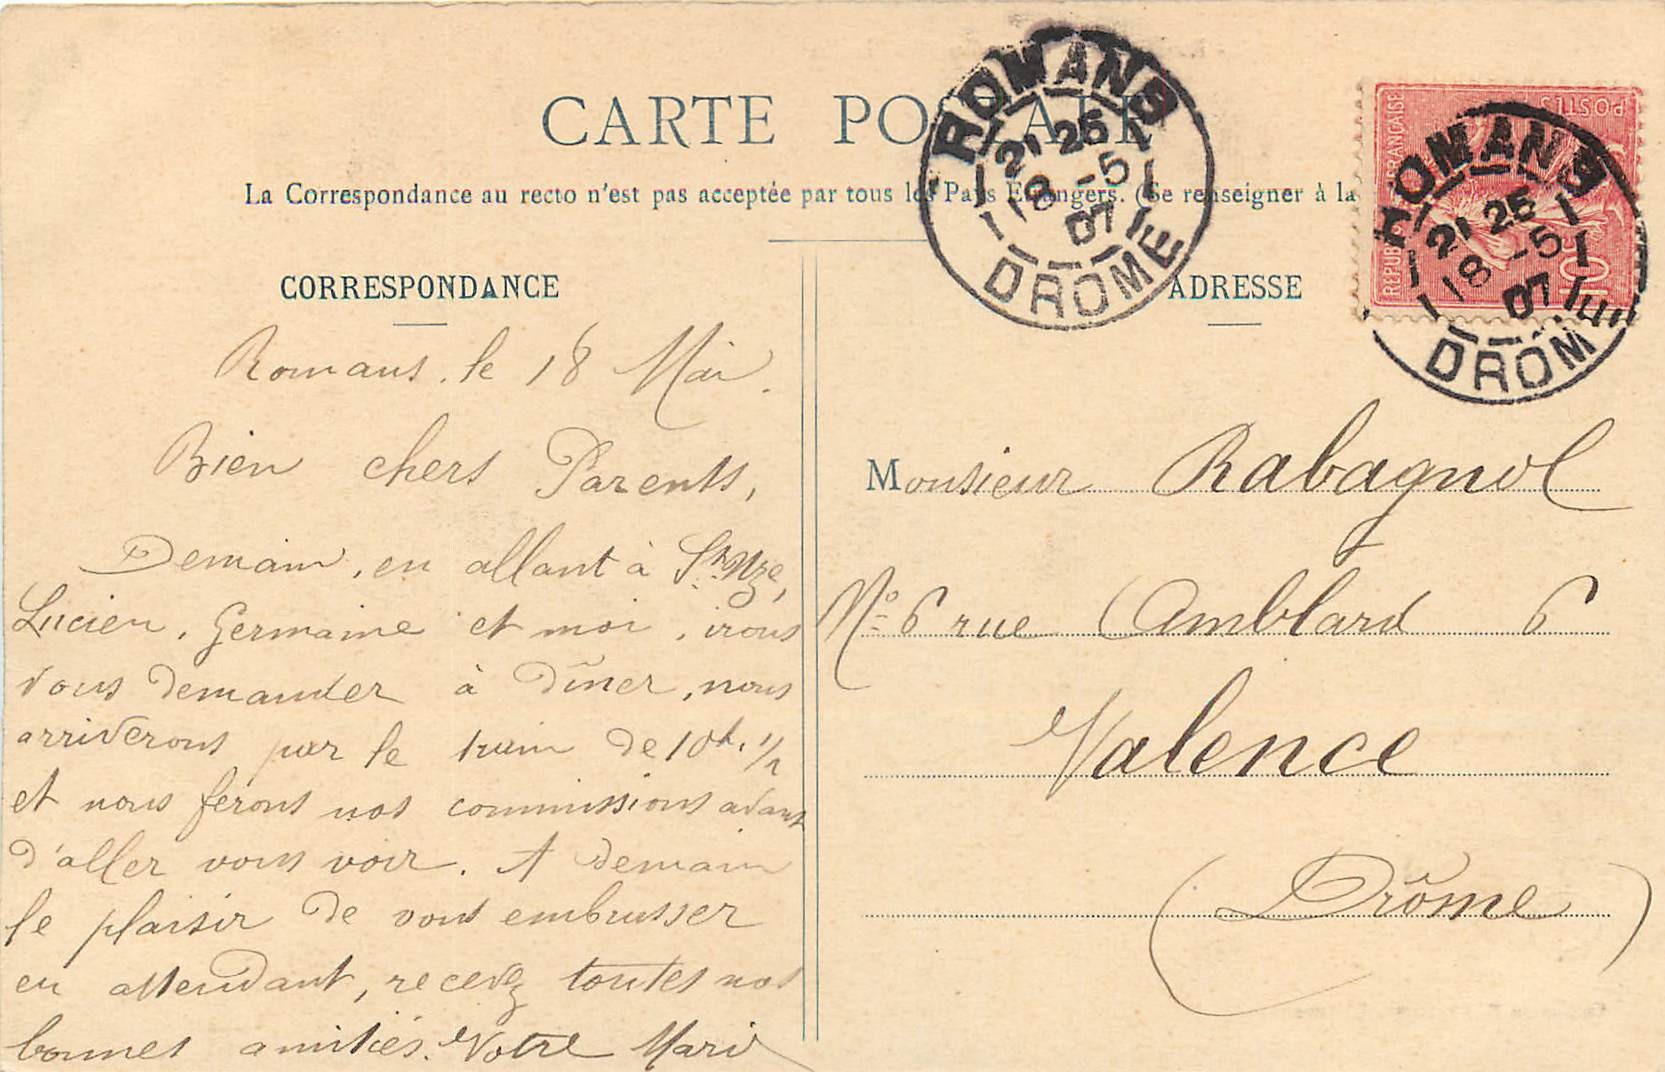 CARTE POSTALE
La Correspondance au recto n'est pas acceptée par tous les Pays Etrangers. (Se renseigner à la
CORRESPONDANCE
Romans, le 18 Mai.
Bien chers Parents,
Demain, en allant à St. Uze,
Lucien, Germaine et moi, irons
vous demander à Dîner, nous
arriverons par le train de 10h. 1/2
et nous ferons nos commissions avant
d'aller vous voir. A demain
le plaisir de vous embrasser
en attendant, recevez toutes nos
bonnes amitiés. Votre Marie
ADRESSE
Monsieur Rabagnol
No. 6 rue Amblard 6
Valence
(Drôme)
ROMANS
21 25
18 -5
07
DROME
REPUBLIQUE FRANÇAISE
POSTES
10
ROMANS
21 25
18 -5
07
DROME